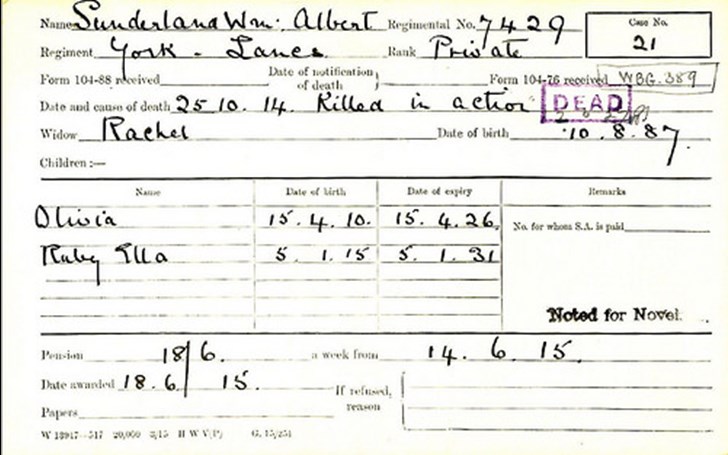 Name Sunderland Wm: Albert Regimental No. 7429 Case No.
Regiment York - Lancs Rank Private 21
Form 104-88 received Date of notification of death Form 104-76 received WBG.389
Date and cause of death 25 10. 14. Killed in action DEAD
Widow Rachel Date of birth 10.8.87.
Children:—
Name Date of birth Date of expiry Remarks
Olivia 15.4.10. 15.4.26. No. for whom S.A. is paid
Ruby Ella 5.1.15 5.1.31
Noted for Novel.
Pension 18/6. a week from 14.6.15.
Date awarded 18.6 15. If refused, reason
Papers
W 13947—517 20,000 3/15 H W V(P) G. 15/251